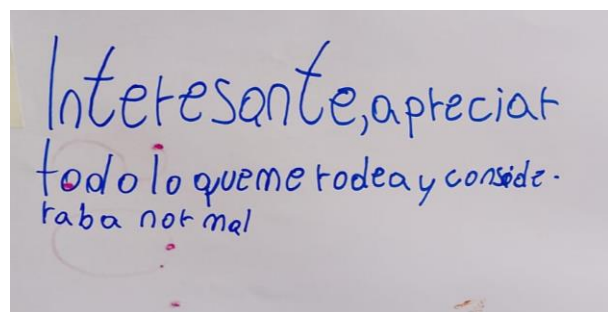 Interesante, apreciar
todo lo que me rodea y conside-
raba normal